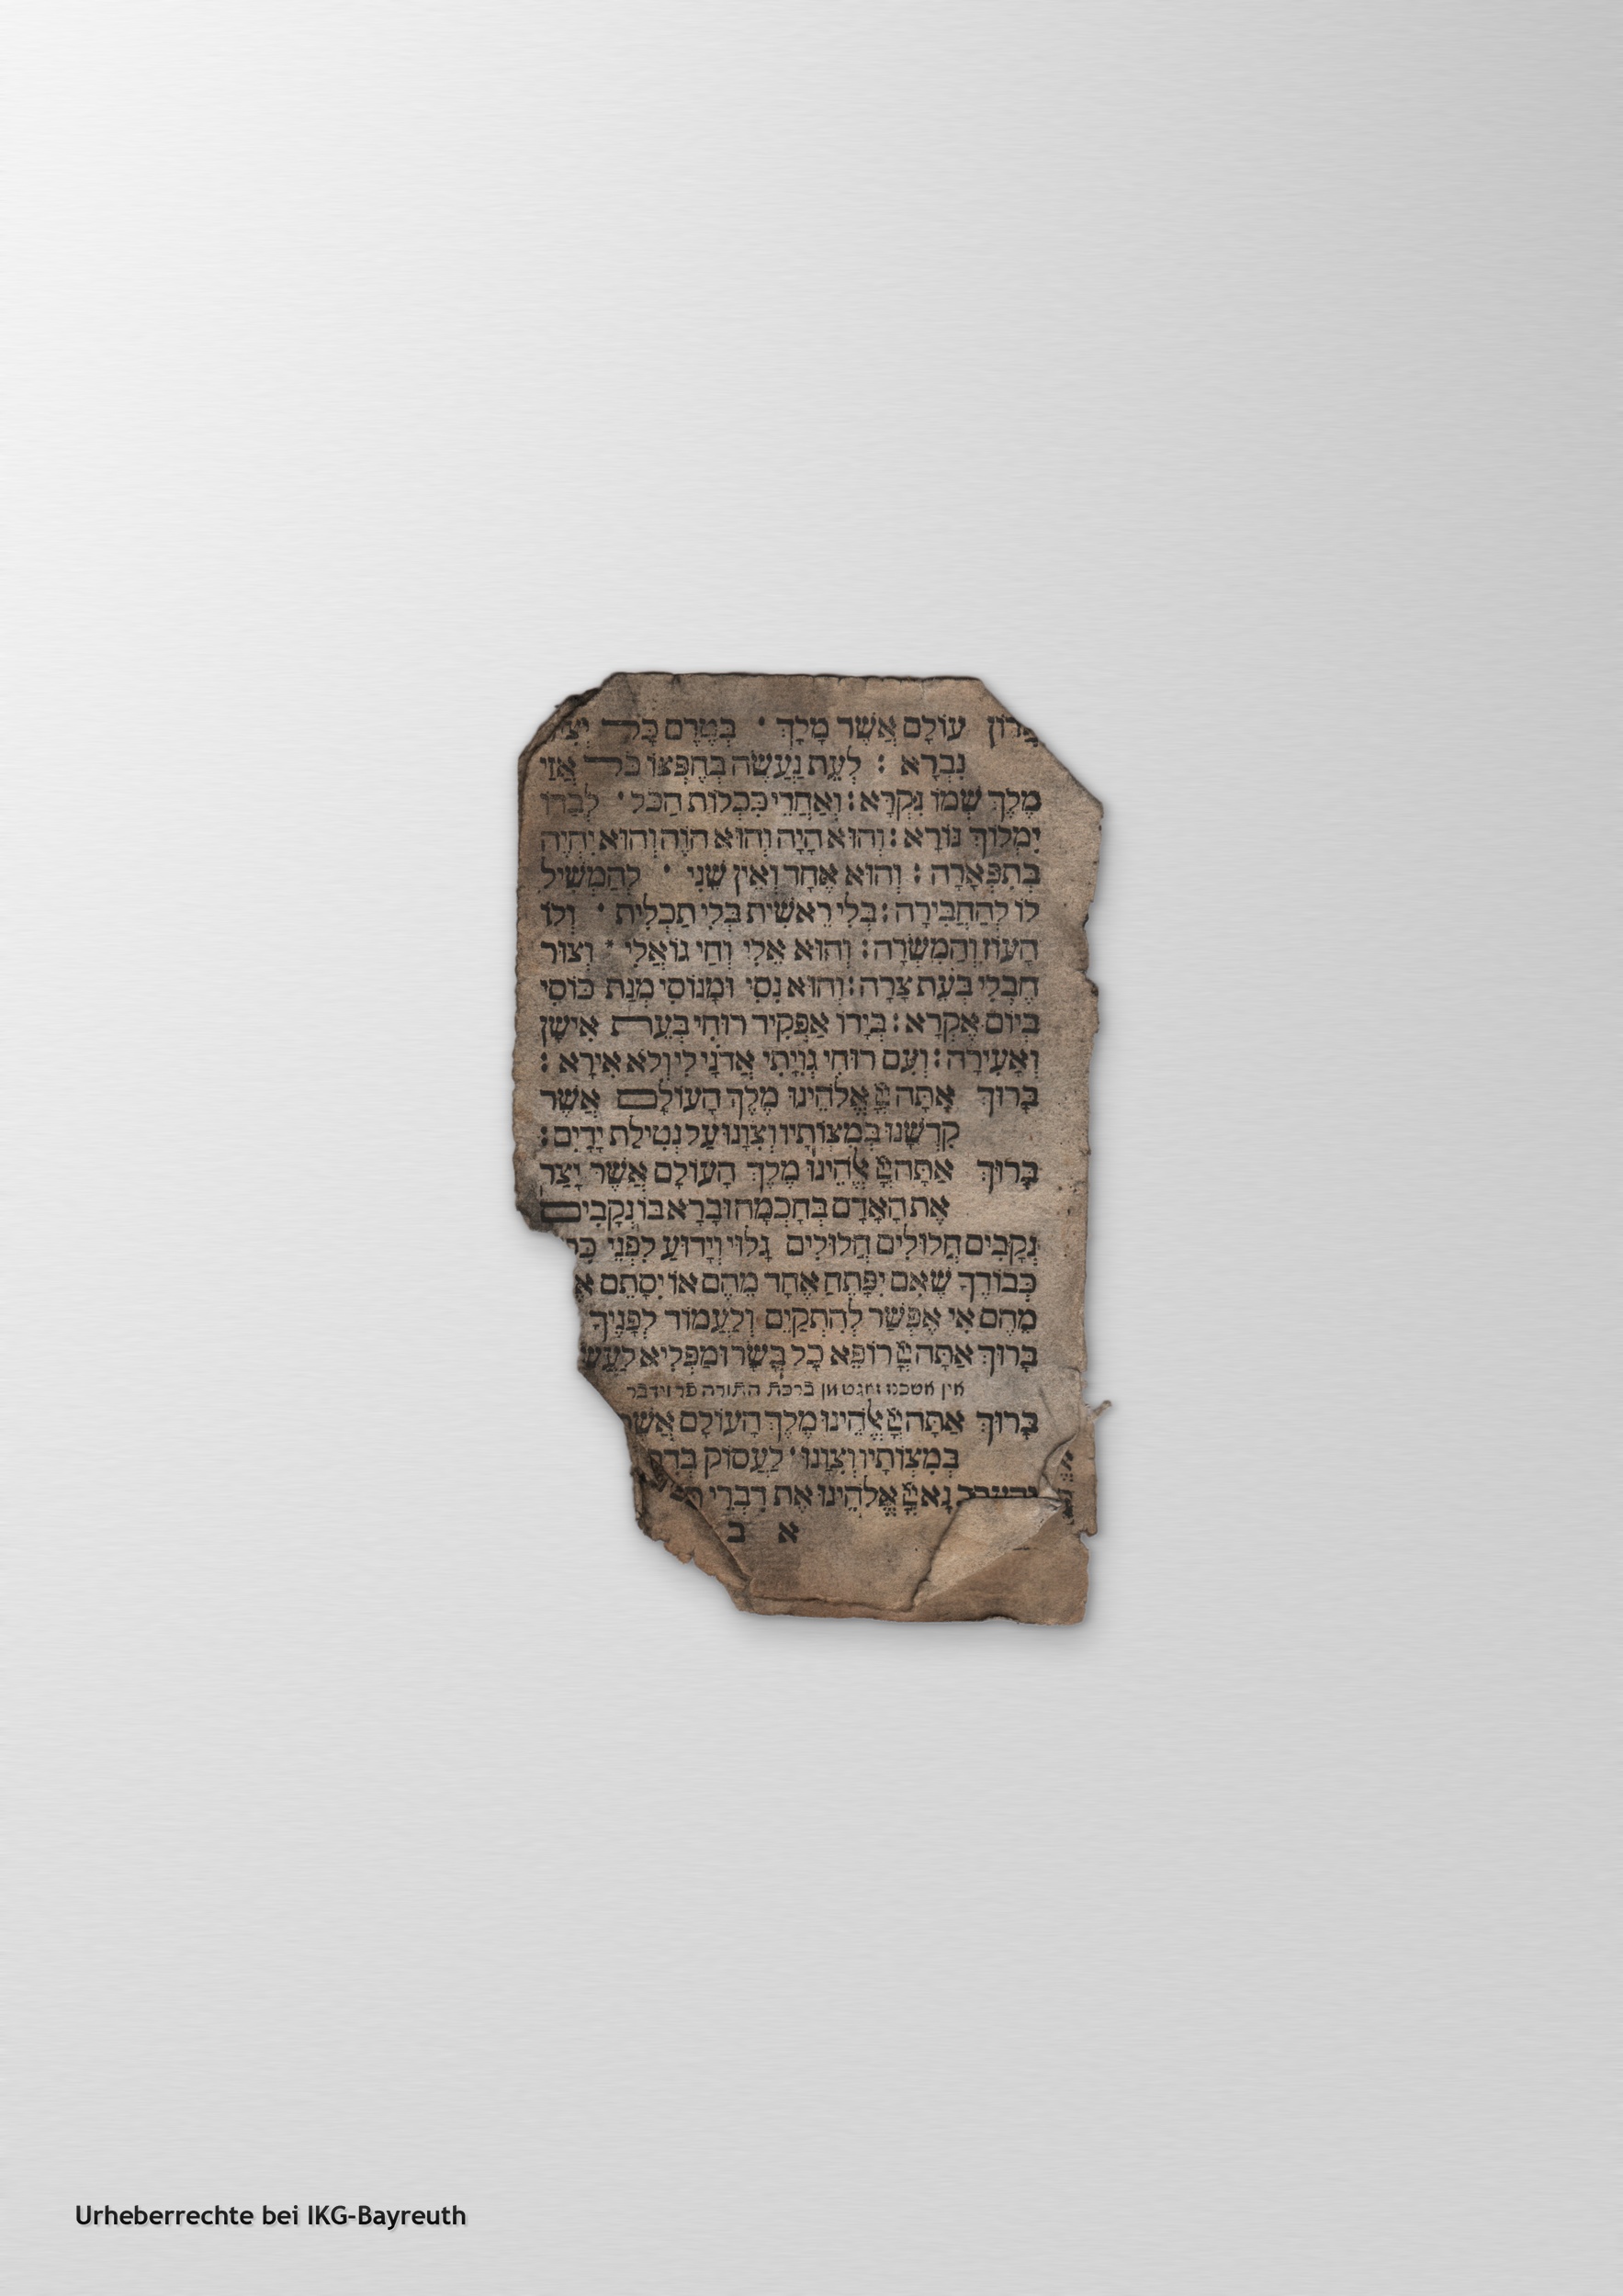 אֲדוֹן עוֹלָם אֲשֶׁר מָלַךְ · בְּטֶרֶם כָּל יְצִי
נִבְרָא : לְעֵת נַעֲשָׂה בְחֶפְצוֹ כֹּל אֲזַי
מֶלֶךְ שְׁמוֹ נִקְרָא : וְאַחֲרֵי כִּכְלוֹת הַכֹּל · לְבַדּוֹ
יִמְלוֹךְ נוֹרָא : וְהוּא הָיָה וְהוּא הוֹוֶה וְהוּא יִהְיֶה
בְּתִפְאָרָה : וְהוּא אֶחָד וְאֵין שֵׁנִי · לְהַמְשִׁיל
לוֹ לְהַחְבִּירָה : בְּלִי רֵאשִׁית בְּלִי תַכְלִית · וְלוֹ
הָעוֹז וְהַמִּשְׂרָה : וְהוּא אֵלִי וְחַי גּוֹאֲלִי * וְצוּר
חֶבְלִי בְּעֵת צָרָה : וְהוּא נִסִּי וּמָנוֹסִי מְנָת כּוֹסִי
בְּיוֹם אֶקְרָא : בְּיָדוֹ אַפְקִיד רוּחִי בְּעֵת אִישַׁן
וְאָעִירָה : וְעִם רוּחִי גְוִיָּתִי אֲדֹנָי לִי וְלֹא אִירָא :
בָּרוּךְ אַתָּה יְיָ אֱלֹהֵינוּ מֶלֶךְ הָעוֹלָם אֲשֶׁר
קִדְּשָׁנוּ בְּמִצְוֹתָיו וְצִוָּנוּ עַל נְטִילַת יָדָיִם :
בָּרוּךְ אַתָּה יְיָ אֱלֹהֵינוּ מֶלֶךְ הָעוֹלָם אֲשֶׁר יָצַר
אֶת הָאָדָם בְּחָכְמָה וּבָרָא בוֹ נְקָבִים
נְקָבִים חֲלוּלִים חֲלוּלִים גָּלוּי וְיָדוּעַ לִפְנֵי כִּ
כְּבוֹדֶךָ שֶׁאִם יִפָּתֵחַ אֶחָד מֵהֶם אוֹ יִסָּתֵם א
מֵהֶם אִי אֶפְשַׁר לְהִתְקַיֵּם וְלַעֲמוֹד לְפָנֶיךָ
בָּרוּךְ אַתָּה יְיָ רוֹפֵא כָל בָּשָׂר וּמַפְלִיא לַעֲשׂ
אין אשכנז זאגט מן ברכת התורה פר וידבר
בָּרוּךְ אַתָּה יְיָ אֱלֹהֵינוּ מֶלֶךְ הָעוֹלָם אֲשֶׁר
בְּמִצְוֹתָיו וְצִוָּנוּ · לַעֲסוֹק בְּדִבְ
וְהַעֲרֵב נָא יְיָ אֱלֹהֵינוּ אֶת דִּבְרֵי
א ב
Urheberrechte bei IKG-Bayreuth